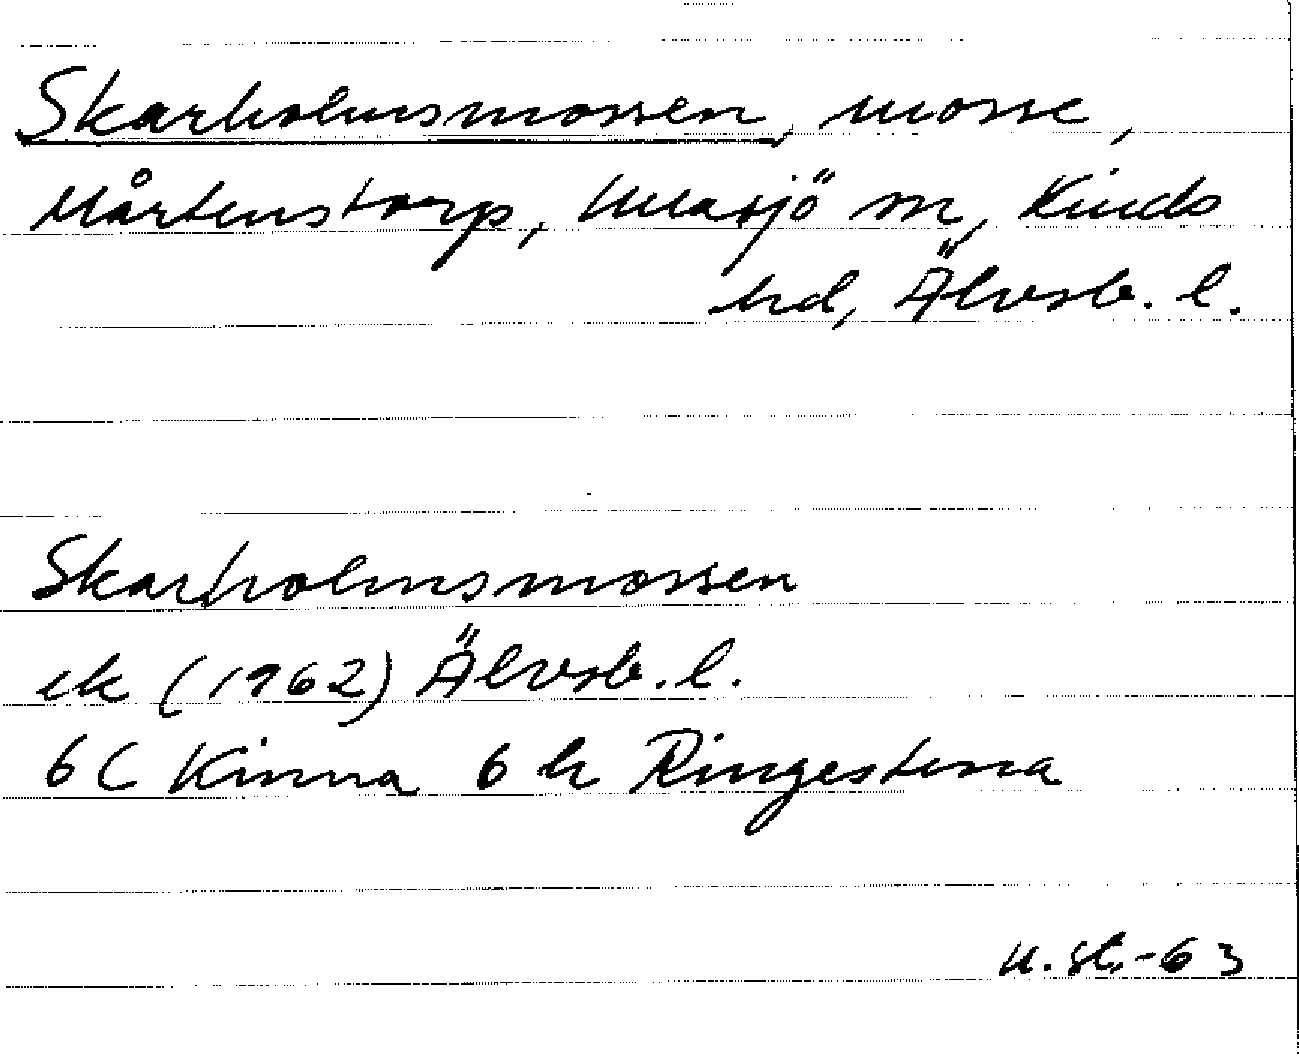 Skarholmsmossen, mosse,
Mårtenstorp, Ullasjö sn, Kinds
hd, Älvsb. l.
Skarholmsmossen
ek (1962) Älvsb. l.
6C Kinna 6 h Ringestena
-63